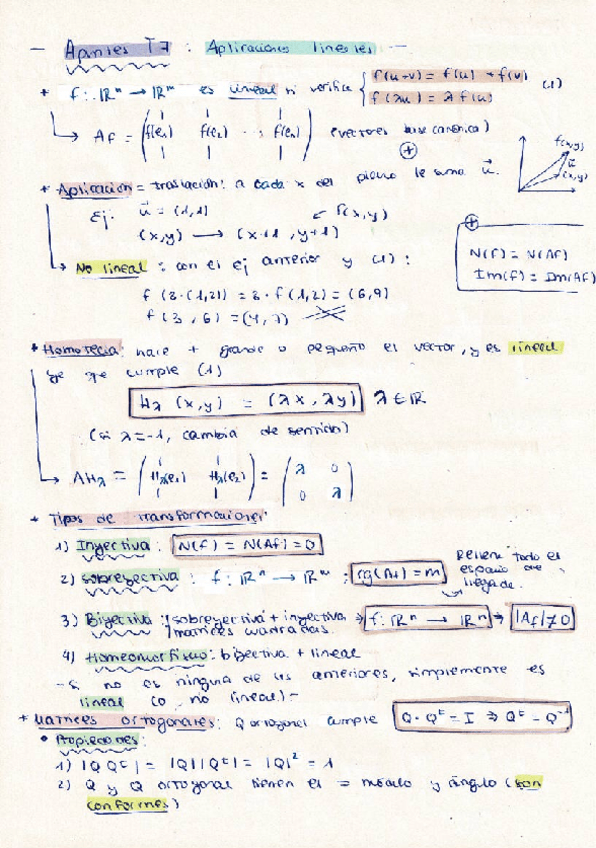 — Apuntes T7 : Aplicaciones lineales —
+ f: ℝⁿ → ℝᵐ es lineal si verifica { f(u+v) = f(u) + f(v)
f(λu) = λ f(u) (1)
↳ Af = ( f(e₁) f(e₂) ... f(eₙ) ) (vectores base canónica)
+ Aplicación = traslación: a cada x del plano le suma u⃗.
f(x,y)
u⃗
(x,y)
Ej: u⃗ = (1,1) f(x,y)
(x,y) → (x+1, y+1)
⊕
N(f) = N(Af)
Im(f) = Im(Af)
↳ No lineal: con el ej anterior y (1):
f(3·(1,2)) = 3·f(1,2) = (6,9)
f(3,6) = (4,7)
+ Homotecia: hace + grande o pequeño el vector, y es lineal
ya que cumple (1)
Hλ (x,y) = (λx, λy) λ ∈ ℝ
(si λ = -1, cambia de sentido)
↳ AHλ = ( Hλ(e₁) Hλ(e₂) ) = ( λ 0
0 λ )
+ Tipos de transformaciones:
1) Inyectiva: N(f) = N(Af) = 0
2) Sobreyectiva: f: ℝⁿ → ℝᵐ : rg(Af) = m Rellena todo el
espacio de
llegada.
3) Biyectiva: sobreyectiva + inyectiva → f: ℝⁿ → ℝⁿ → |Af| ≠ 0
matrices cuadradas.
4) Homeomorfismo: biyectiva + lineal
- si no es ninguna de las anteriores, simplemente es
lineal (o no lineal) -
+ Matrices ortogonales: Q ortogonal cumple Q·Qᵗ = I ⇒ Qᵗ = Q⁻¹
• Propiedades:
1) |QQᵗ| = |Q||Qᵗ| = |Q|² = 1
2) Q y Q ortogonal tienen el = módulo y ángulo (son
conformes)